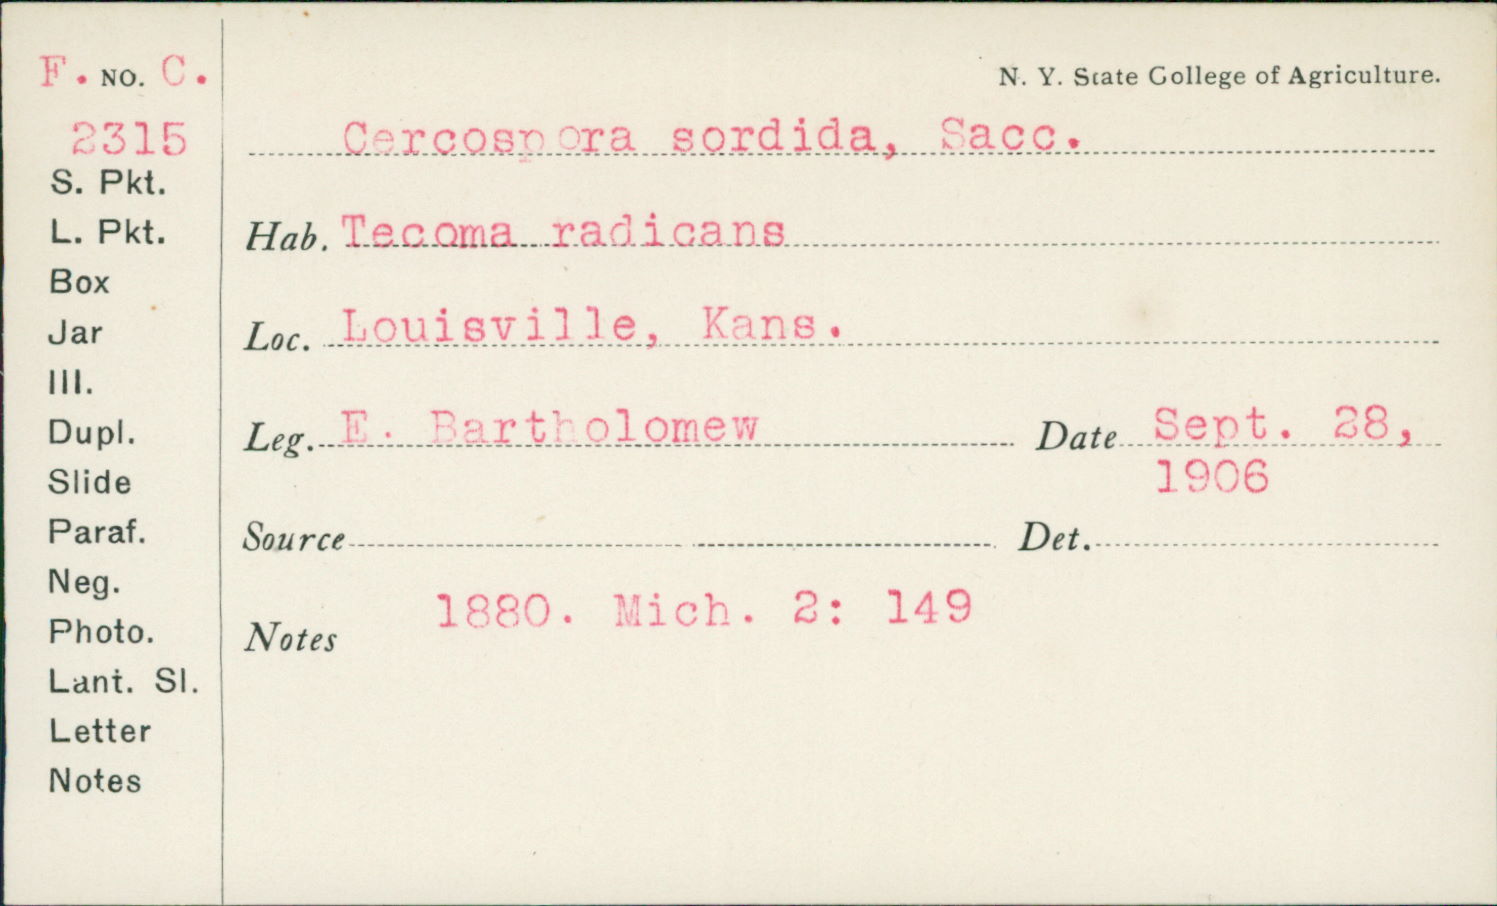 F. NO. C.
N. Y. State College of Agriculture.
2315
Cercospora sordida, Sacc.
S. Pkt.
L. Pkt.
Hab. Tecoma radicans
Box
Jar
Loc. Louisville, Kans.
Ill.
Dupl.
Leg. E. Bartholomew Date Sept. 28,
1906
Slide
Paraf.
Source Det.
Neg.
1880. Mich. 2: 149
Photo.
Notes
Lant. Sl.
Letter
Notes